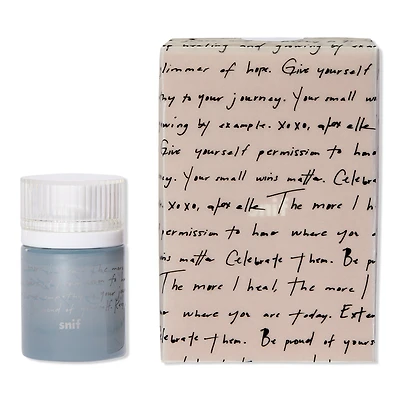 healing and growing by exam
limmer of hope. Give yourself
ny to your journey. Your small wi
wing by example. xoxo, alex elle
Give yourself permission to hono
ey. Your small wins matter. Celebra
. xoxo, alex elle The more I h
snif
permission to honor where you a
ins matter Celebrate them. Be p
The more I heal, the more I
where you are today. Exten
ebrate them. Be proud of yours
the more
snif